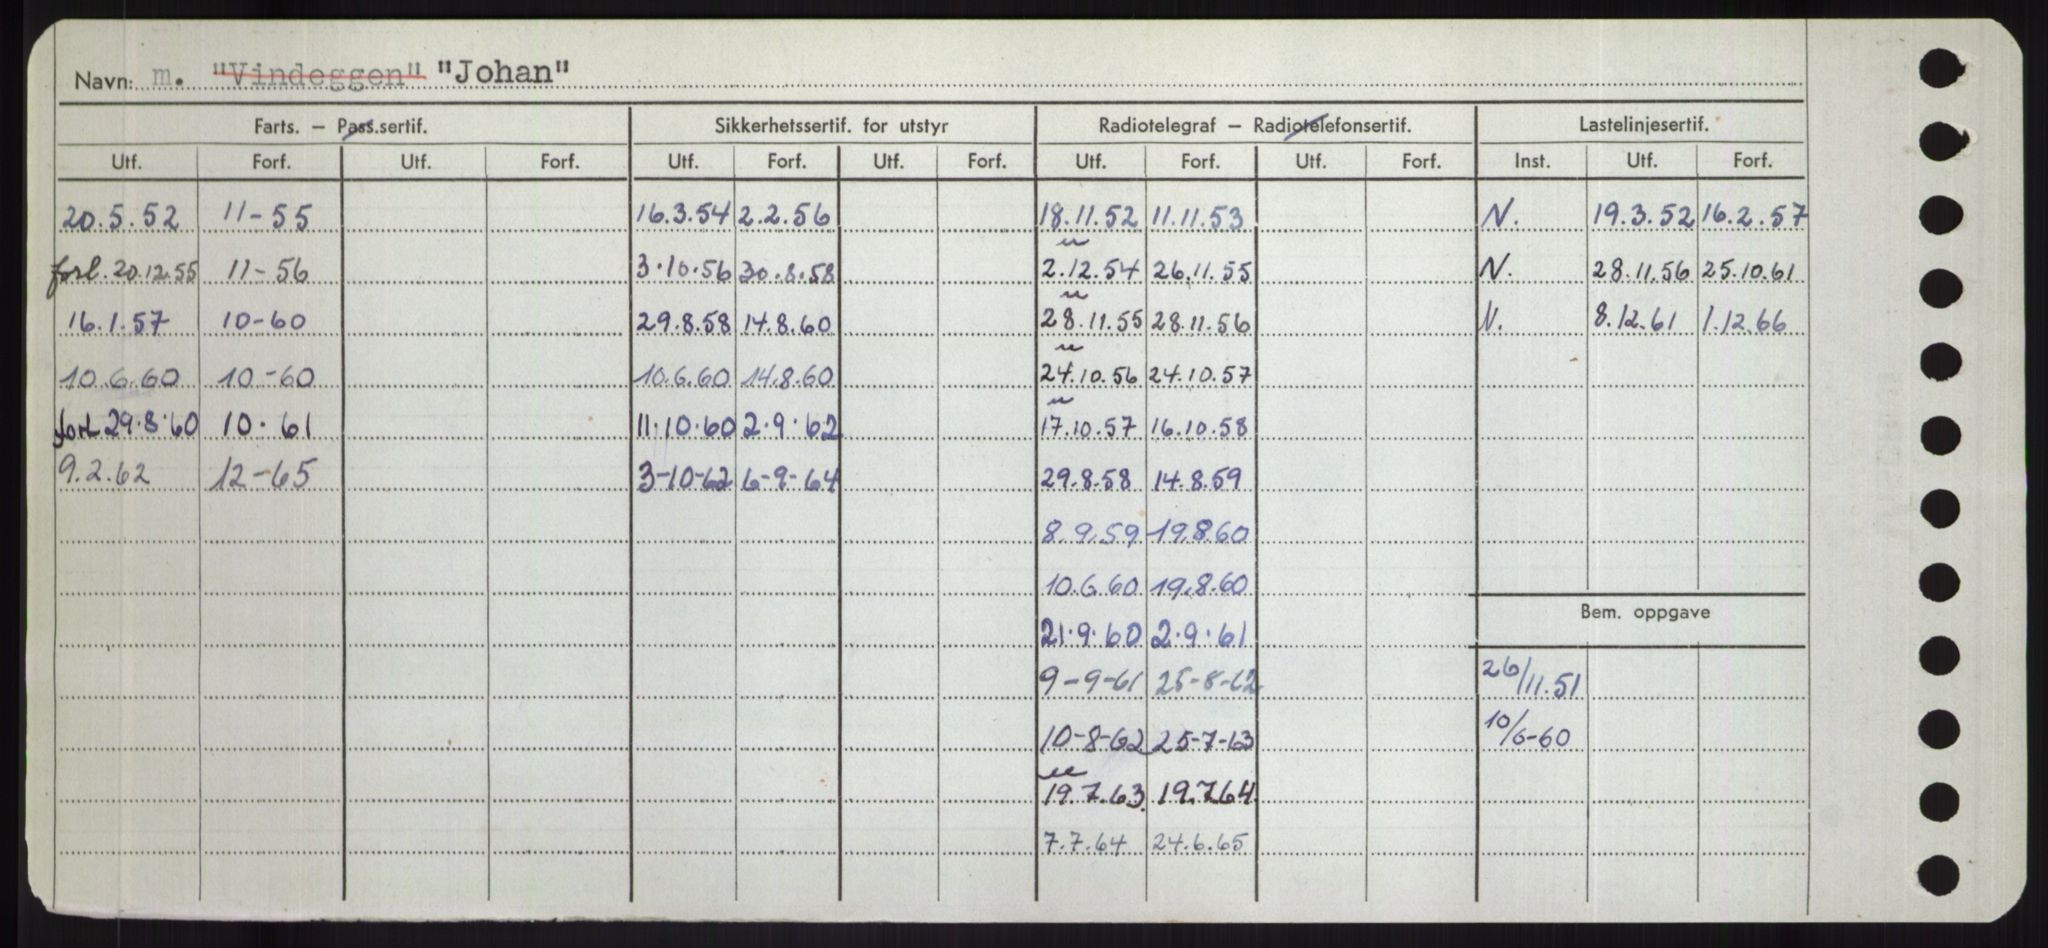 Navn: m. "Vindeggen" "Johan"
Farts. – Pass.sertif. Sikkerhetssertif. for utstyr Radiotelegraf – Radiotelefonsertif. Lastelinjesertif.
Utf. Forf. Utf. Forf. Utf. Forf. Utf. Forf. Utf. Forf. Utf. Forf. Inst. Utf. Forf.
20.5.52 11-55 16.3.54 2.2.56 18.11.52 11.11.53 N. 19.3.52 16.2.57
forl. 20.12.55 11-56 3.10.56 30.8.58 2.12.54 26.11.55 N. 28.11.56 25.10.61
16.1.57 10-60 29.8.58 14.8.60 28.11.55 28.11.56 N. 8.12.61 1.12.66
10.6.60 10-60 10.6.60 14.8.60 24.10.56 24.10.57
forl 29.8.60 10.61 11.10.60 2.9.62 17.10.57 16.10.58
9.2.62 12-65 3-10-62 6-9-64 29.8.58 14.8.59
8.9.59 19.8.60
10.6.60 19.8.60
Bem. oppgave
21.9.60 2.9.61
9-9-61 25-8-62 26/11.51
10-8-62 25-7-63 10/6-60
19.7.63 19.7.64
7.7.64 24.6.65